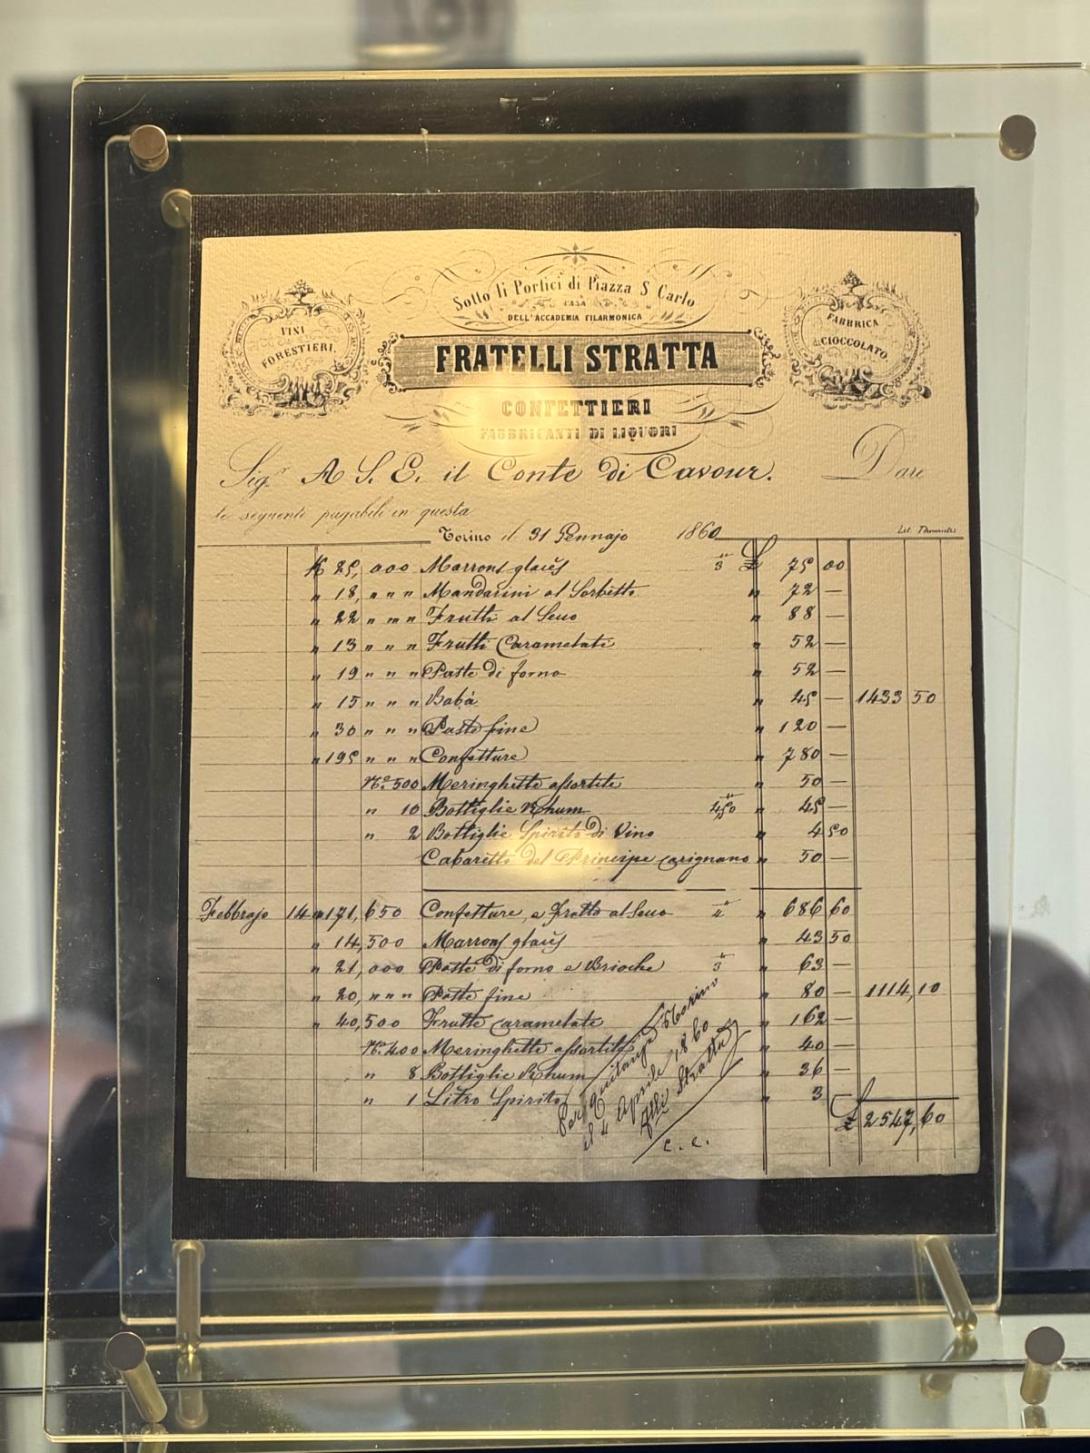 VINI
FORESTIERI
Sotto li Portici di Piazza S. Carlo
CASA
DELL'ACCADEMIA FILARMONICA
FRATELLI STRATTA
CONFETTIERI
FABBRICANTI DI LIQUORI
FABBRICA
di CIOCCOLATO
Sig.r A S. E. il Conte di Cavour. Dare
le seguenti pagabili in questa
Torino il 31 Gennajo 1860
K 25, 000 Marrons glacés 3 £ 75 00
" 18, " " " Mandarini al Sorbetto " 72 —
" 22 " " " Frutti al Seco " 88 —
" 13 " " " Frutti Caramelati " 52 —
" 19 " " " Paste di forno " 52 —
" 15 " " " Babà " 45 — 1433 50
" 30 " " " Paste fine " 120 —
" 195 " " " Confetture " 780 —
N.° 500 Meringhette assortite " 50 —
" 10 Bottiglie Rhum 4,50 " 45 —
" 2 Bottiglie Spirito di Vino " 4 50
Cabaretto del Principe Carignano " 50 —
Febbrajo 14 " 171, 650 Confetture, e Frutta al Seco 4 " 686 60
" 14,500 Marrons glacés " 43 50
" 21, 000 Paste di forno e Brioche 3 " 63 —
" 20, " " " Paste fine " 80 — 1114,10
" 40,500 Frutti caramelate " 162 —
N.° 400 Meringhette assortite " 40 —
" 8 Bottiglie Rhum " 36 —
" 1 Litro Spirito " 3 —
£ 2547,60
Per quitanza Torino
il 4 Aprile 1860
Flli Stratta
C. C.